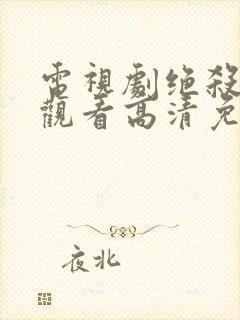 電視劇绝殺
觀看高清免
夜北